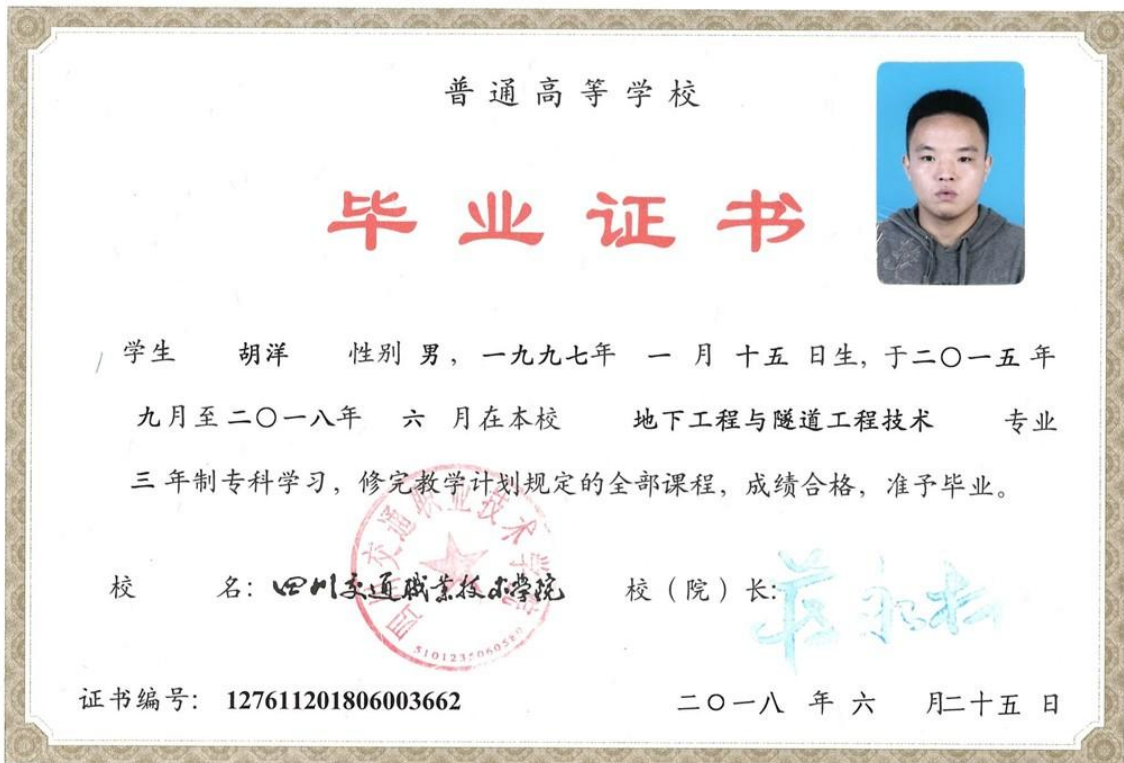 普通高等学校
毕业证书
学生 胡洋 性别 男，一九九七年 一 月 十五 日生，于二〇一五年
九月至二〇一八年 六 月在本校 地下工程与隧道工程技术 专业
三 年制专科学习，修完教学计划规定的全部课程，成绩合格，准予毕业。
校 名：四川交通职业技术学院 校（院）长：
四川交通职业技术学院
5101235060580
证书编号： 127611201806003662 二〇一八 年 六 月二十五 日